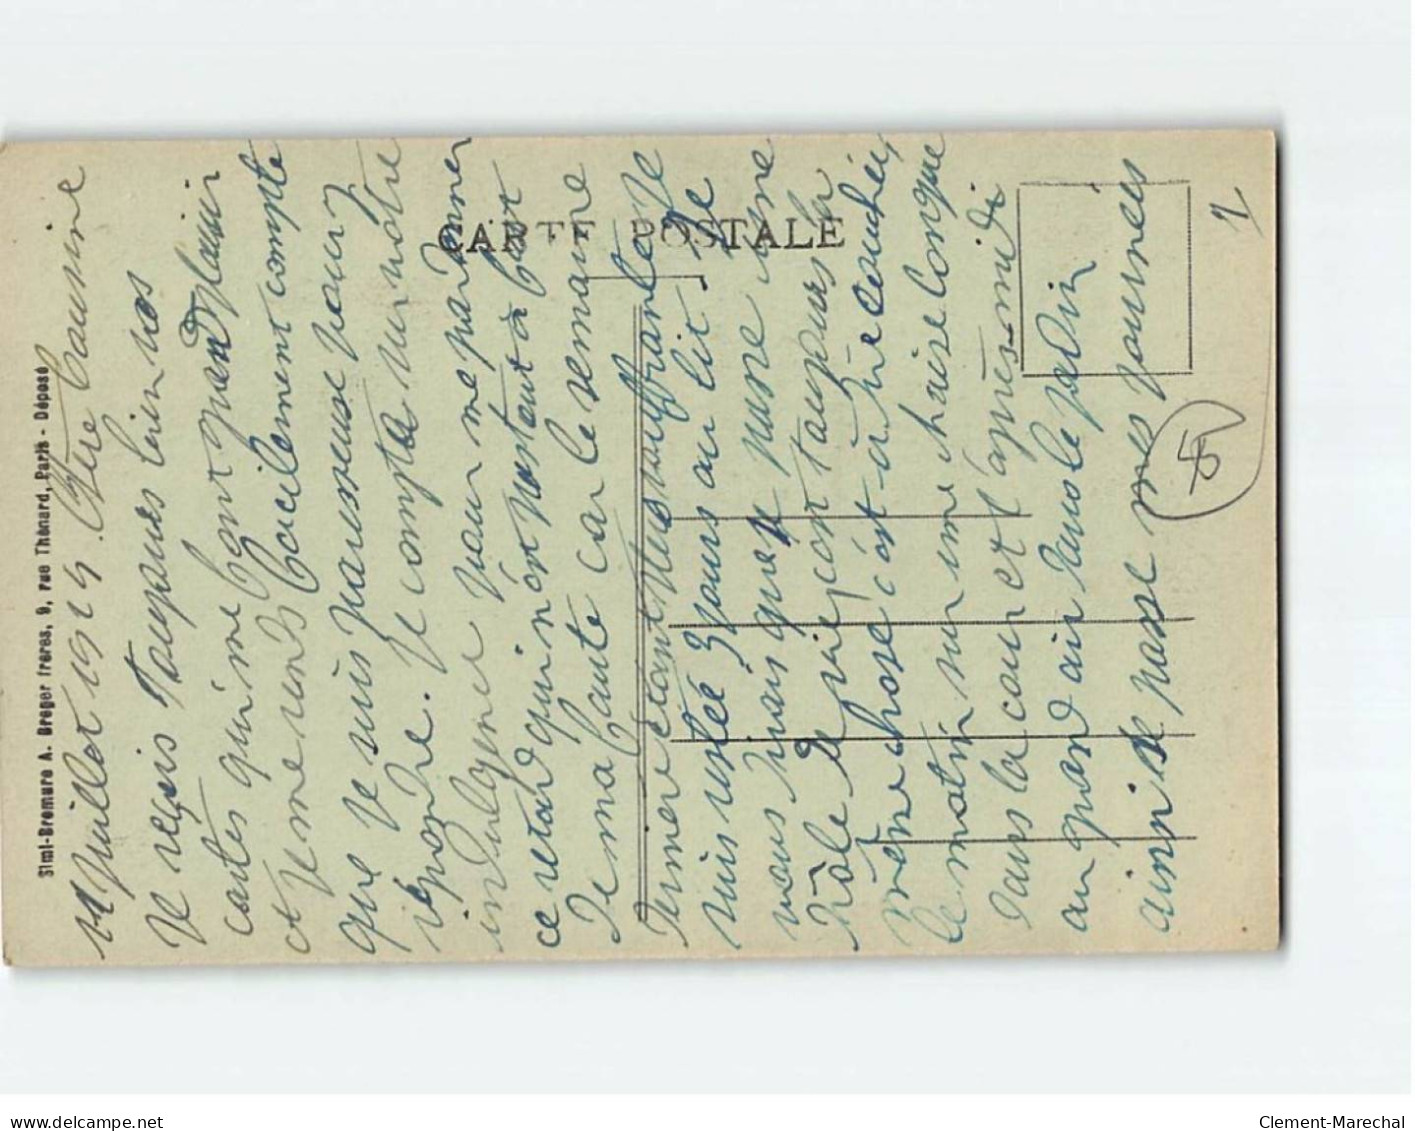 Simi-Bromure A. Breger frères, 9, rue Thénard, Paris - Déposé
CARTE POSTALE
11 Juillet 1924 Chère Cousine
Je reçois toujours bien vos
cartes qui me font grand plaisir
et je me rends facilement compte
que je suis paresseuse pour y
répondre. Je compte sur votre
indulgence pour me pardonner
ce retard qui n'est pourtant à tort
de ma faute car la semaine
dernière étant plus souffrante je
suis restée 3 jours au lit. Je
vous dirais que je mène une
drôle de vie, c'est toujours la
même chose c'est-à-dire couchée,
le matin sur une chaise longue
dans la cour et l'après-midi
au grand air dans le jardin
ainsi se passe mes journées
1
5
delcampe.net
Clement-Marechal